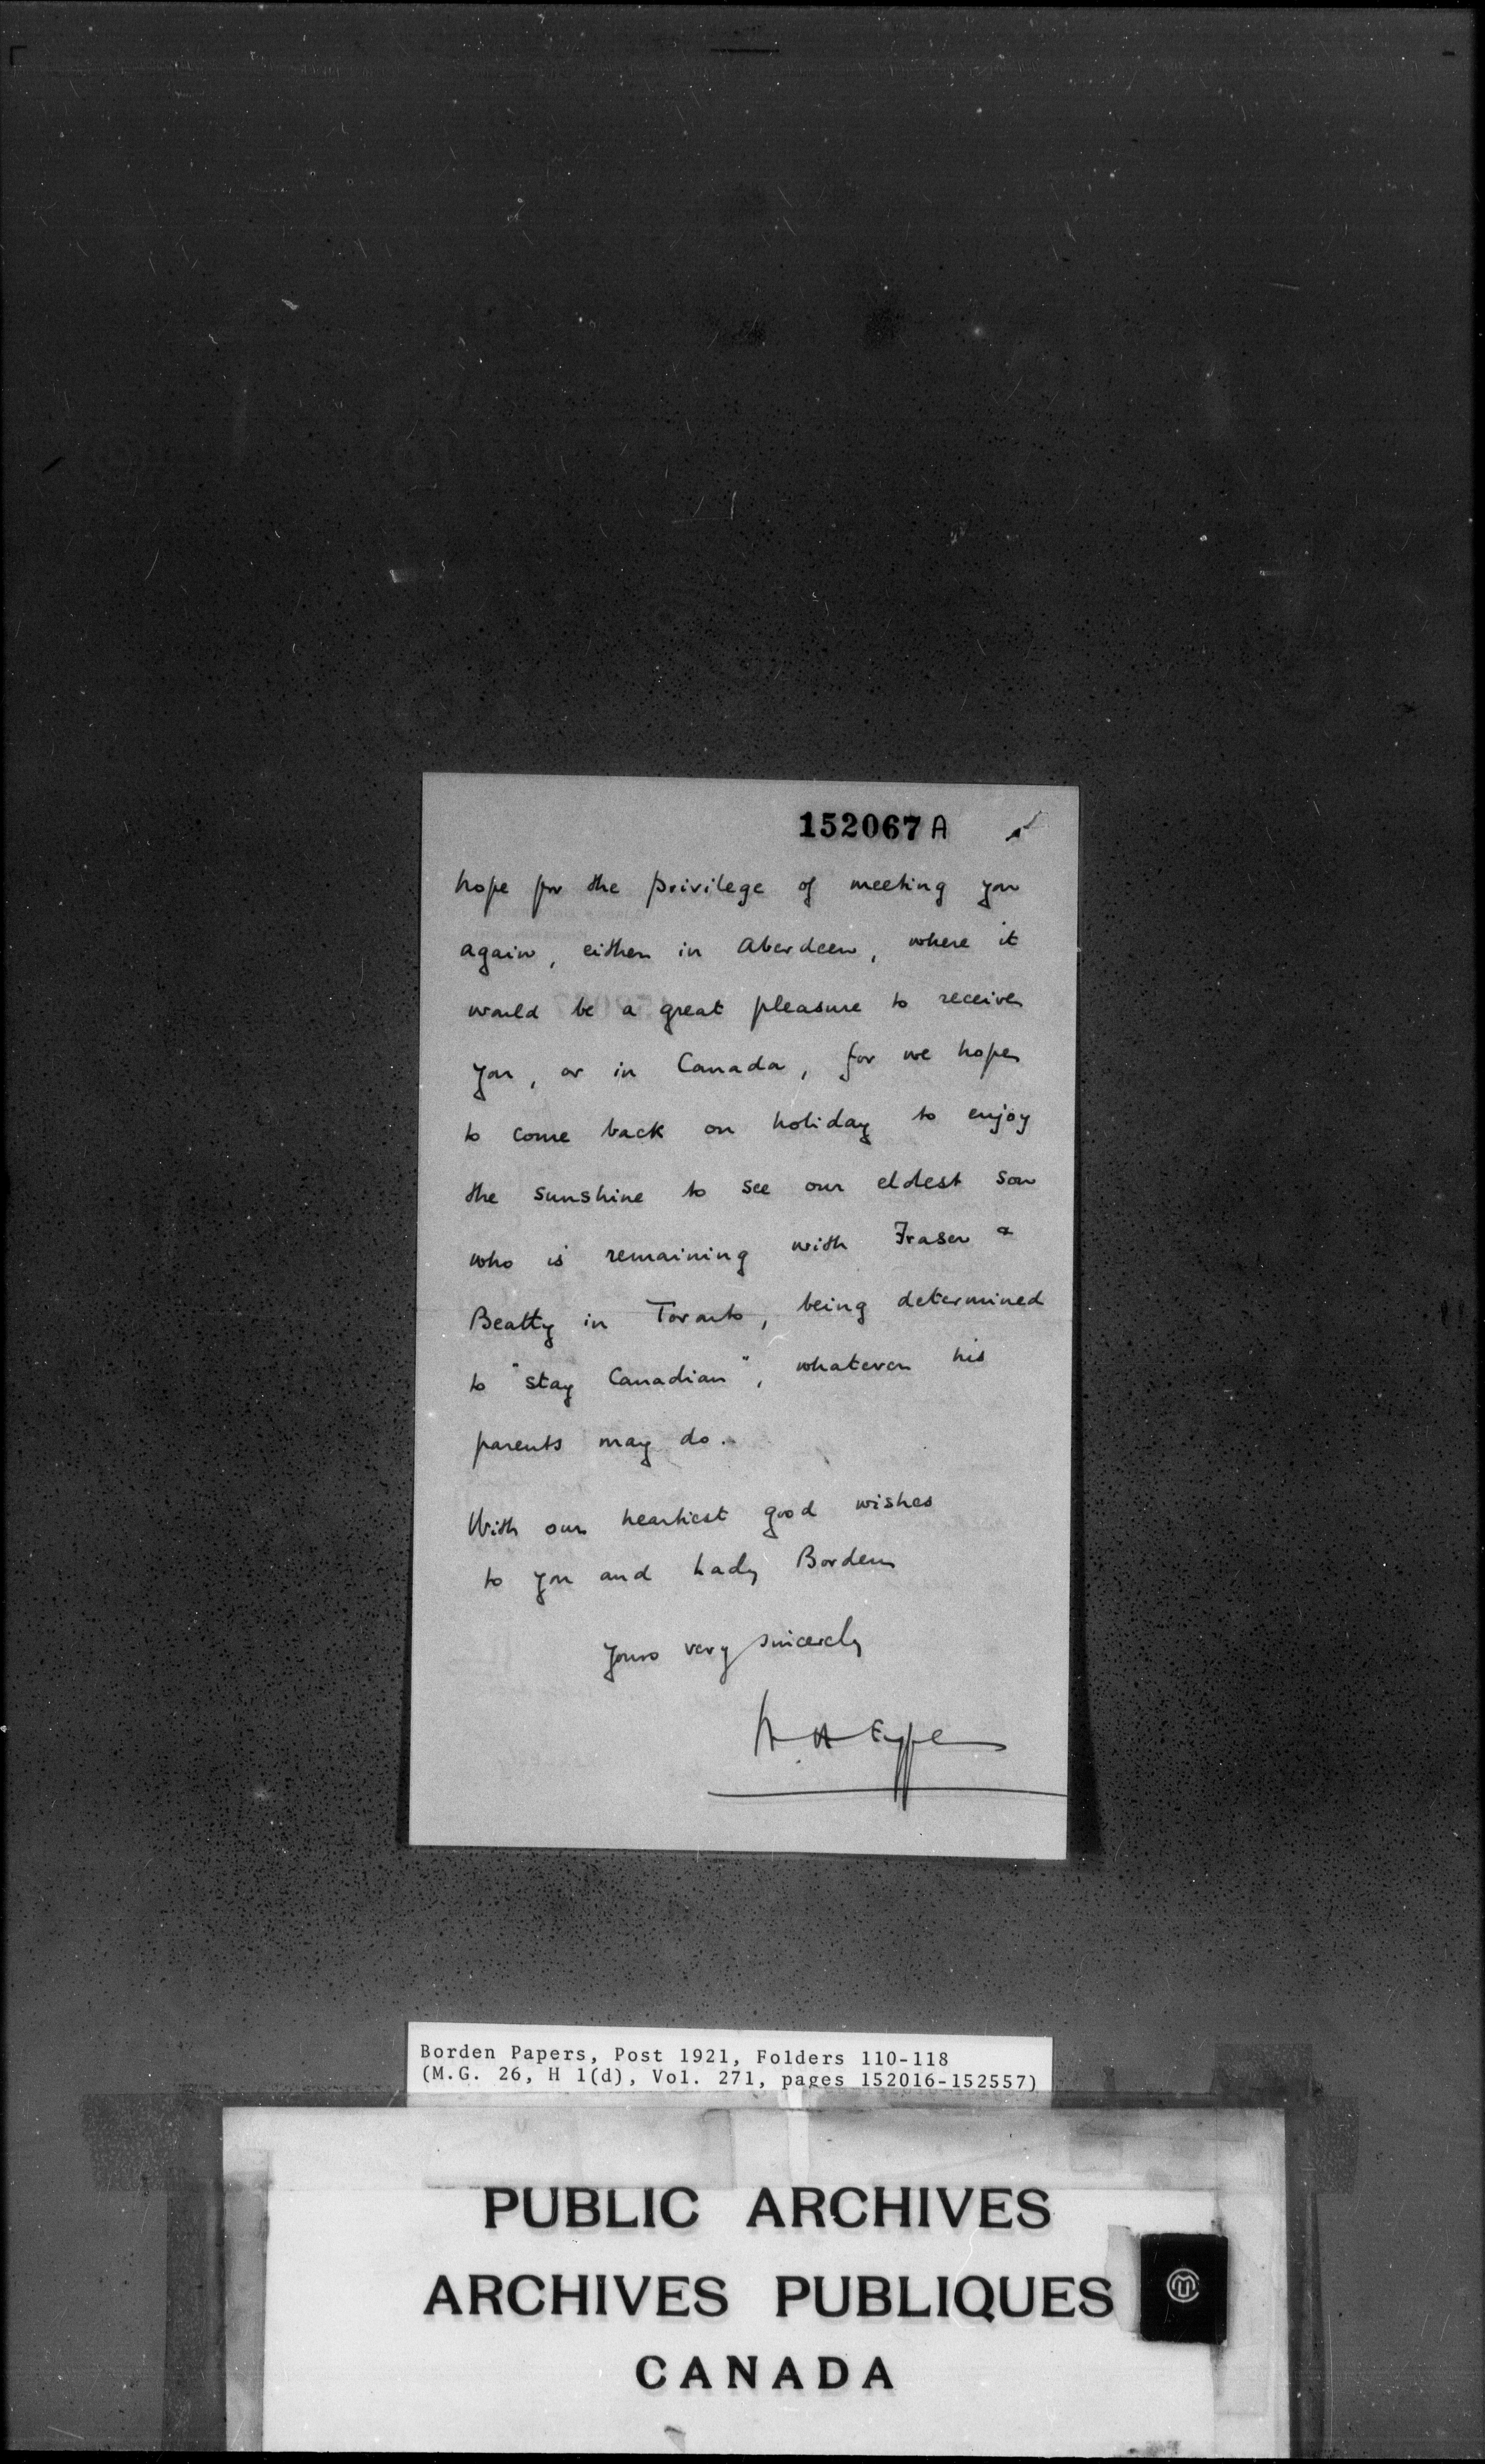 152067 A
hope for the privilege of meeting you
again, either in Aberdeen, where it
would be a great pleasure to receive
you, or in Canada, for we hope
to come back on holiday to enjoy
the sunshine to see our eldest son
who is remaining with Fraser &
Beatty in Toronto, being determined
to "stay Canadian", whatever his
parents may do.
With our heartiest good wishes
to you and Lady Borden
Yours very sincerely
Borden Papers, Post 1921, Folders 110-118
(M.G. 26, H 1(d), Vol. 271, pages 152016-152557)
PUBLIC ARCHIVES
ARCHIVES PUBLIQUES
CANADA